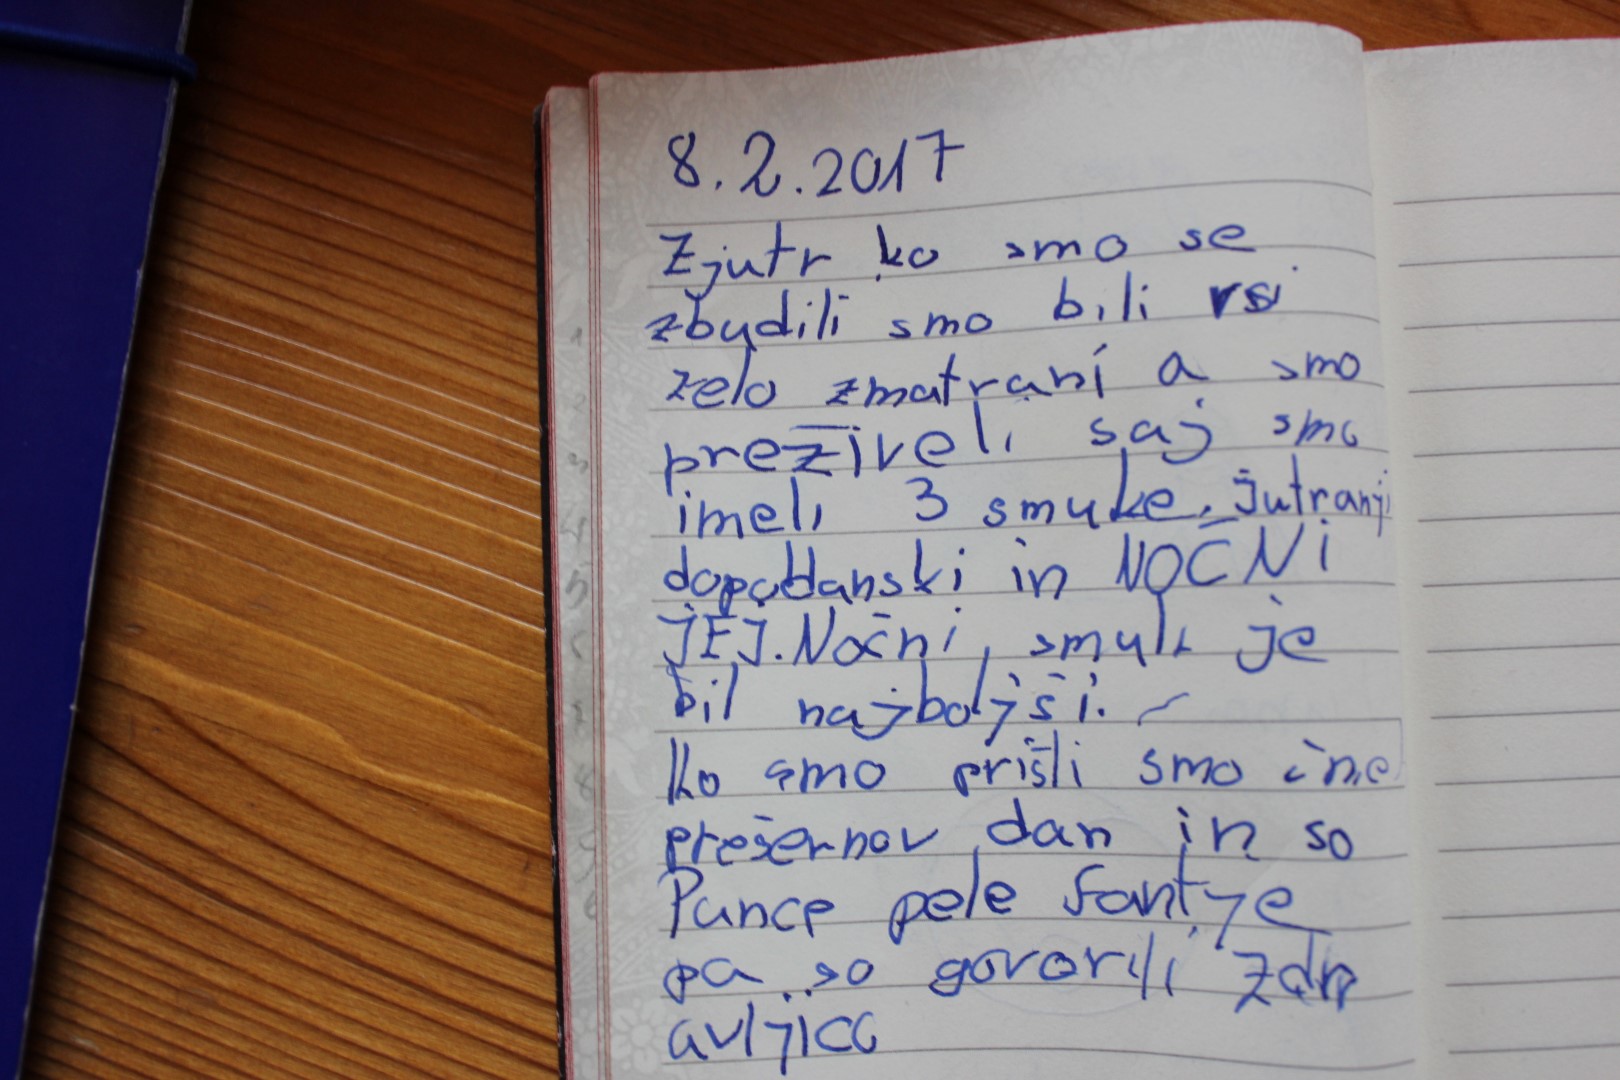 8.2.2017
Zjutr ko smo se
zbudili smo bili vsi
zelo zmatrani a smo
preživeli saj smo
imeli 3 smuke. Jutranji
dopoldanski in NOČNI
JEJ. Nočni smuk je
bil najboljši.
Ko smo prišli smo ime
prešernov dan in so
Punce pele fantje
pa so govorili Zdr
avljico